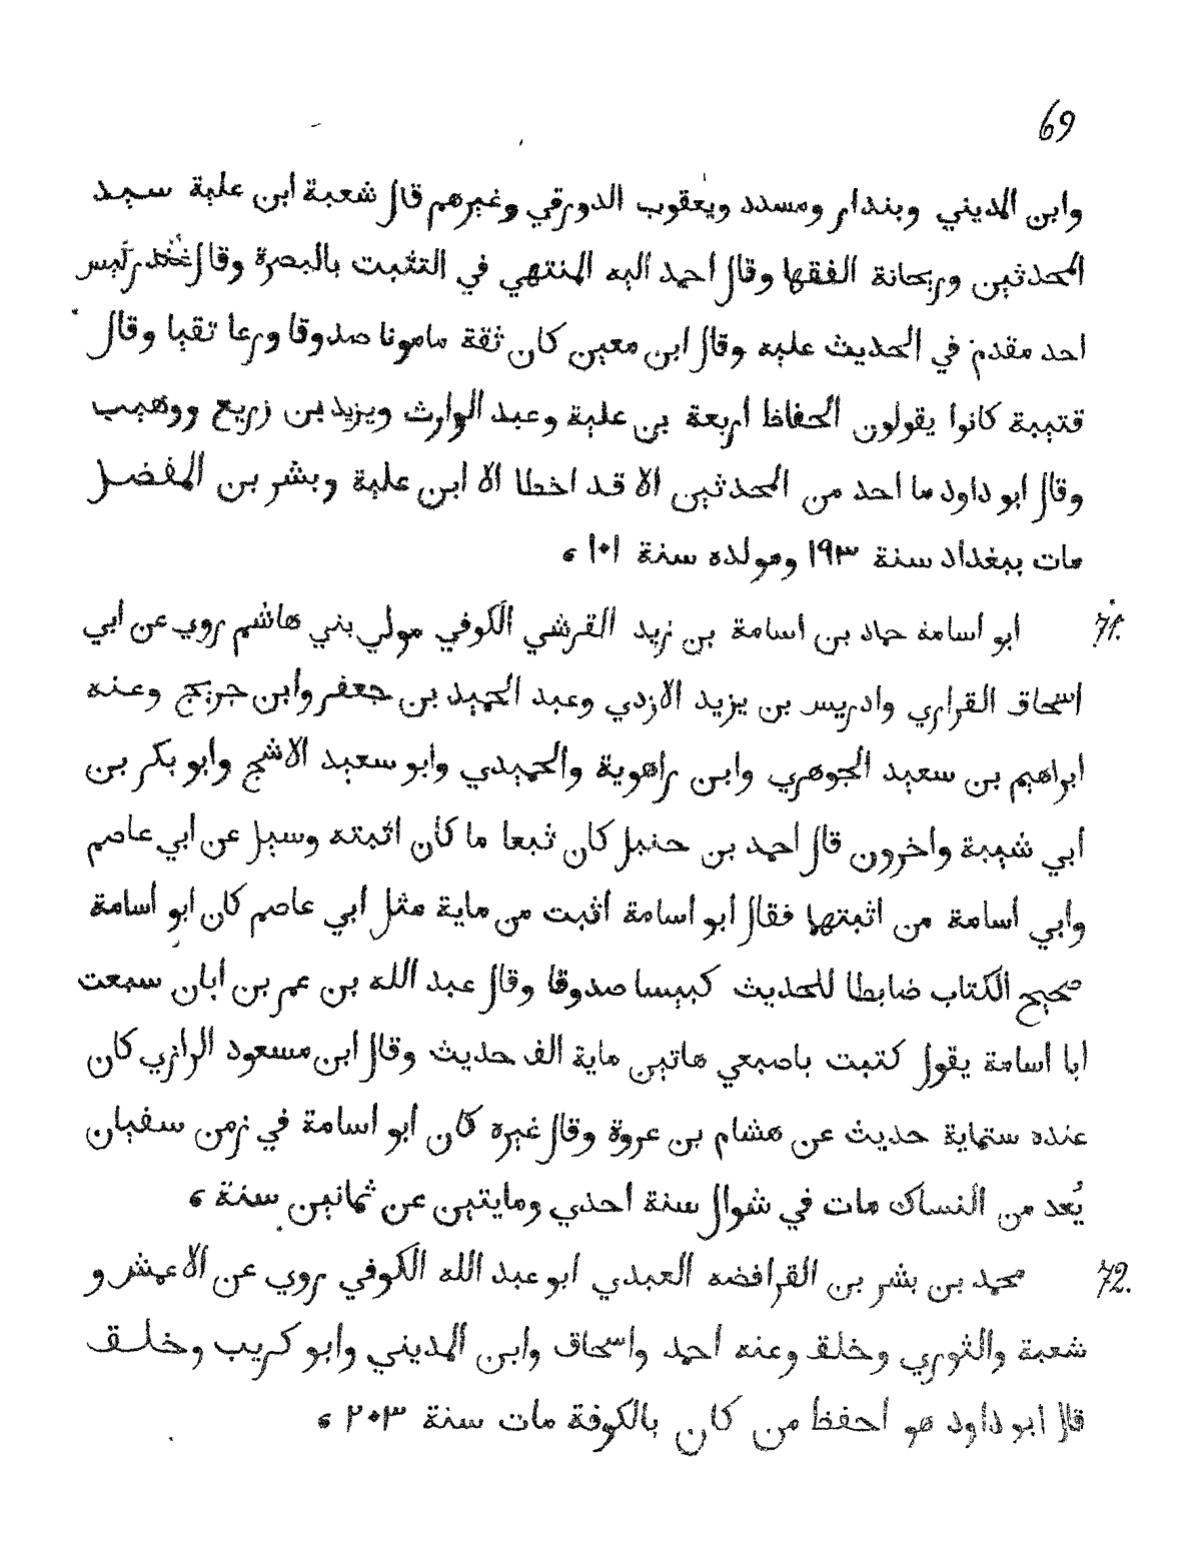 69
وابن المديني وبندار ومسدد ويعقوب الدورقي وغيرهم قال شعبة ابن علية سيد
المحدثين وريحانة الفقها وقال احمد اليه المنتهي في التثبت بالبصرة وقال غندر ليس
احد مقدم في الحديث عليه وقال ابن معين كان ثقة مامونا صدوقا ورعا تقيا وقال
قتيبة كانوا يقولون الحفاظ اربعة بن علية وعبد الوارث ويزيد بن زريع ووهيب
وقال ابو داود ما احد من المحدثين الا قد اخطا الا ابن علية وبشر بن المفضل
مات ببغداد سنة ١٩٣ ومولده سنة ١٠١ ،
71. ابو اسامة حماد بن اسامة بن زيد القرشي الكوفي مولي بني هاشم روي عن ابي
اسحاق القراري وادريس بن يزيد الازدي وعبد الحميد بن جعفر وابن جريج وعنه
ابراهيم بن سعيد الجوهري وابن راهوية والحميدي وابو سعيد الاشج وابو بكر بن
ابي شيبة واخرون قال احمد بن حنبل كان ثبعا ما كان اثبته وسيل عن ابي عاصم
وابي اسامة من اثبتهما فقال ابو اسامة اثبت من ماية مثل ابي عاصم كان ابو اسامة
صحيح الكتاب ضابطا للحديث كبيسا صدوقا وقال عبد الله بن عمر بن ابان سمعت
ابا اسامة يقول كتبت باصبعي هاتين ماية الف حديث وقال ابن مسعود الرازي كان
عنده ستماية حديث عن هشام بن عروة وقال غيره كان ابو اسامة في زمن سفيان
يُعد من النساك مات في شوال سنة احدي ومايتين عن ثمانين سنة ،
72. محمد بن بشر بن القرافضه العبدي ابو عبد الله الكوفي روي عن الاعمش و
شعبة والثوري وخلق وعنه احمد واسحاق وابن المديني وابو كريب وخلق
قال ابو داود هو احفظ من كان بالكوفة مات سنة ٢٠٣ ،